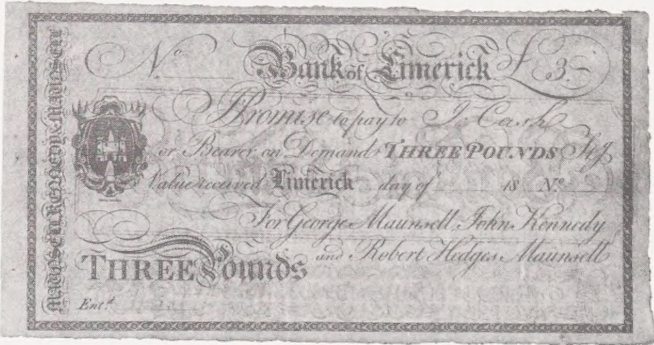 No Bank of Limerick £ 3-
I Promise to pay to J. Cash
or Bearer on Demand THREE POUNDS Stg
Value received Limerick day of 18 No
For George Maunsell John Kennedy
and Robert Hedges Maunsell
THREE Pounds
Entd.
MAUNSELL KENNEDY & MAUNSELL